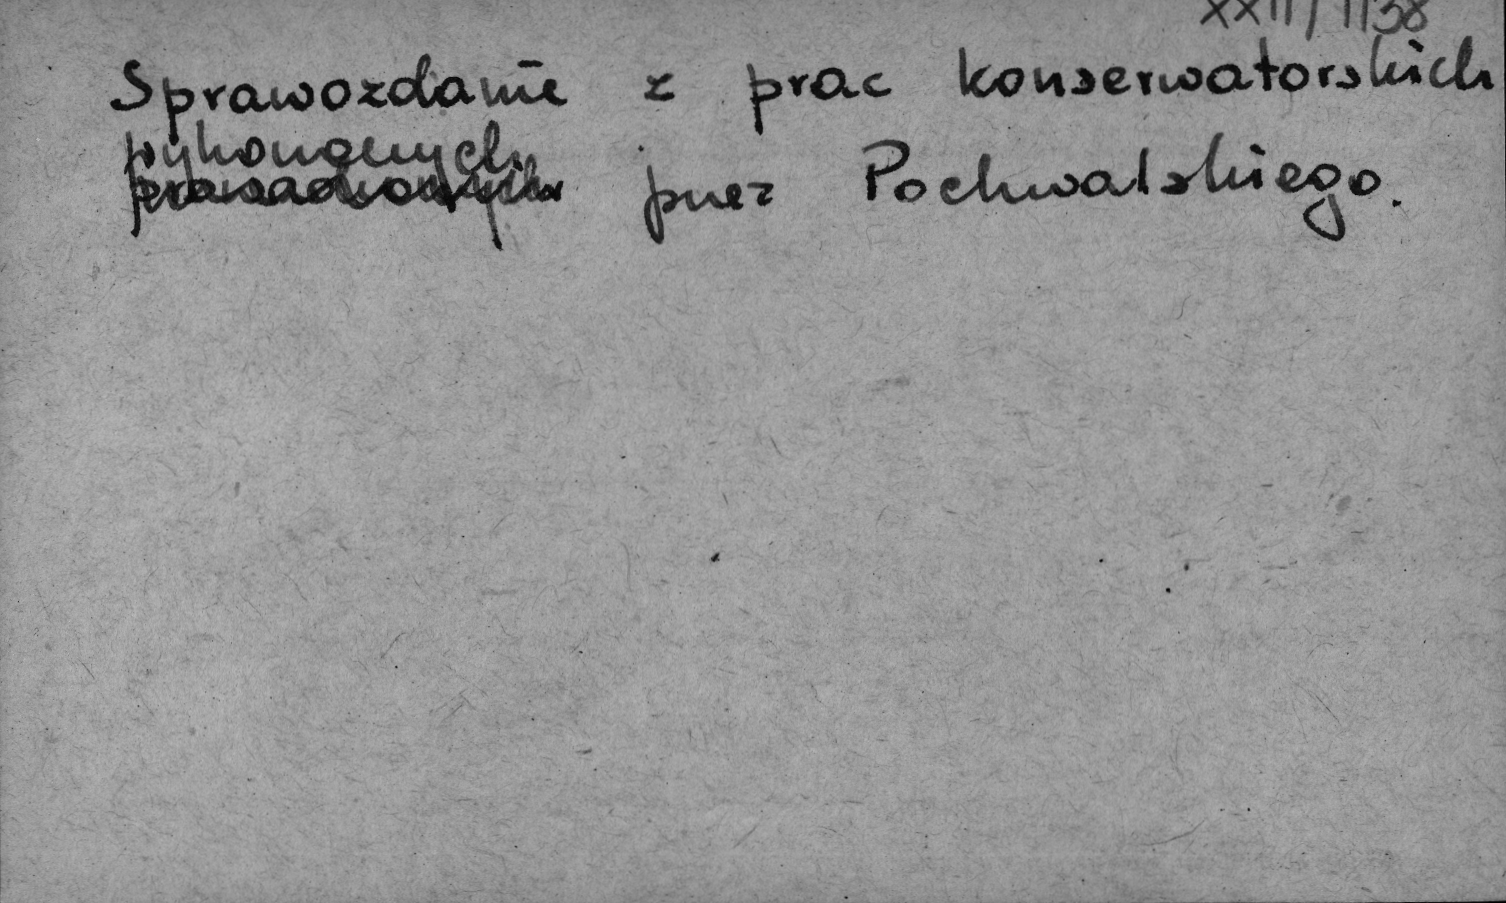 XXII/1138
Sprawozdanie z prac konserwatorskich
wykonanych
prowadzonych przez Pochwalskiego.